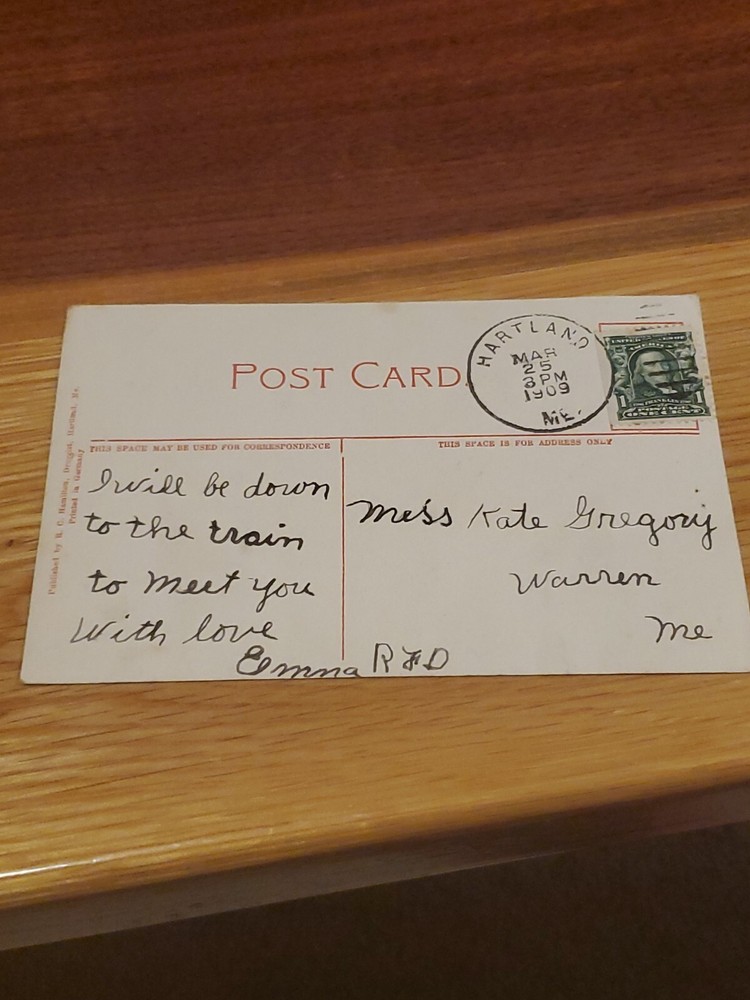 HARTLAND
MAR
25
3 PM
1909
ME.
UNITED STATES OF AMERICA
1 1
POSTAGE
ONE CENT
POST CARD
THIS SPACE MAY BE USED FOR CORRESPONDENCE
THIS SPACE IS FOR ADDRESS ONLY
I will be down
to the train
to meet you
With love
Emma
Miss Kate Gregory
Warren
Me
R F D
Published by H. C. Hamilton, Druggist, Hartland, Me.
Printed in Germany